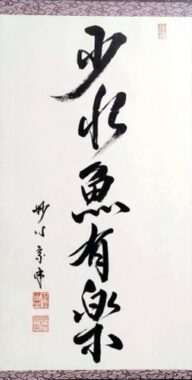 少水魚有樂
妙心宗沖